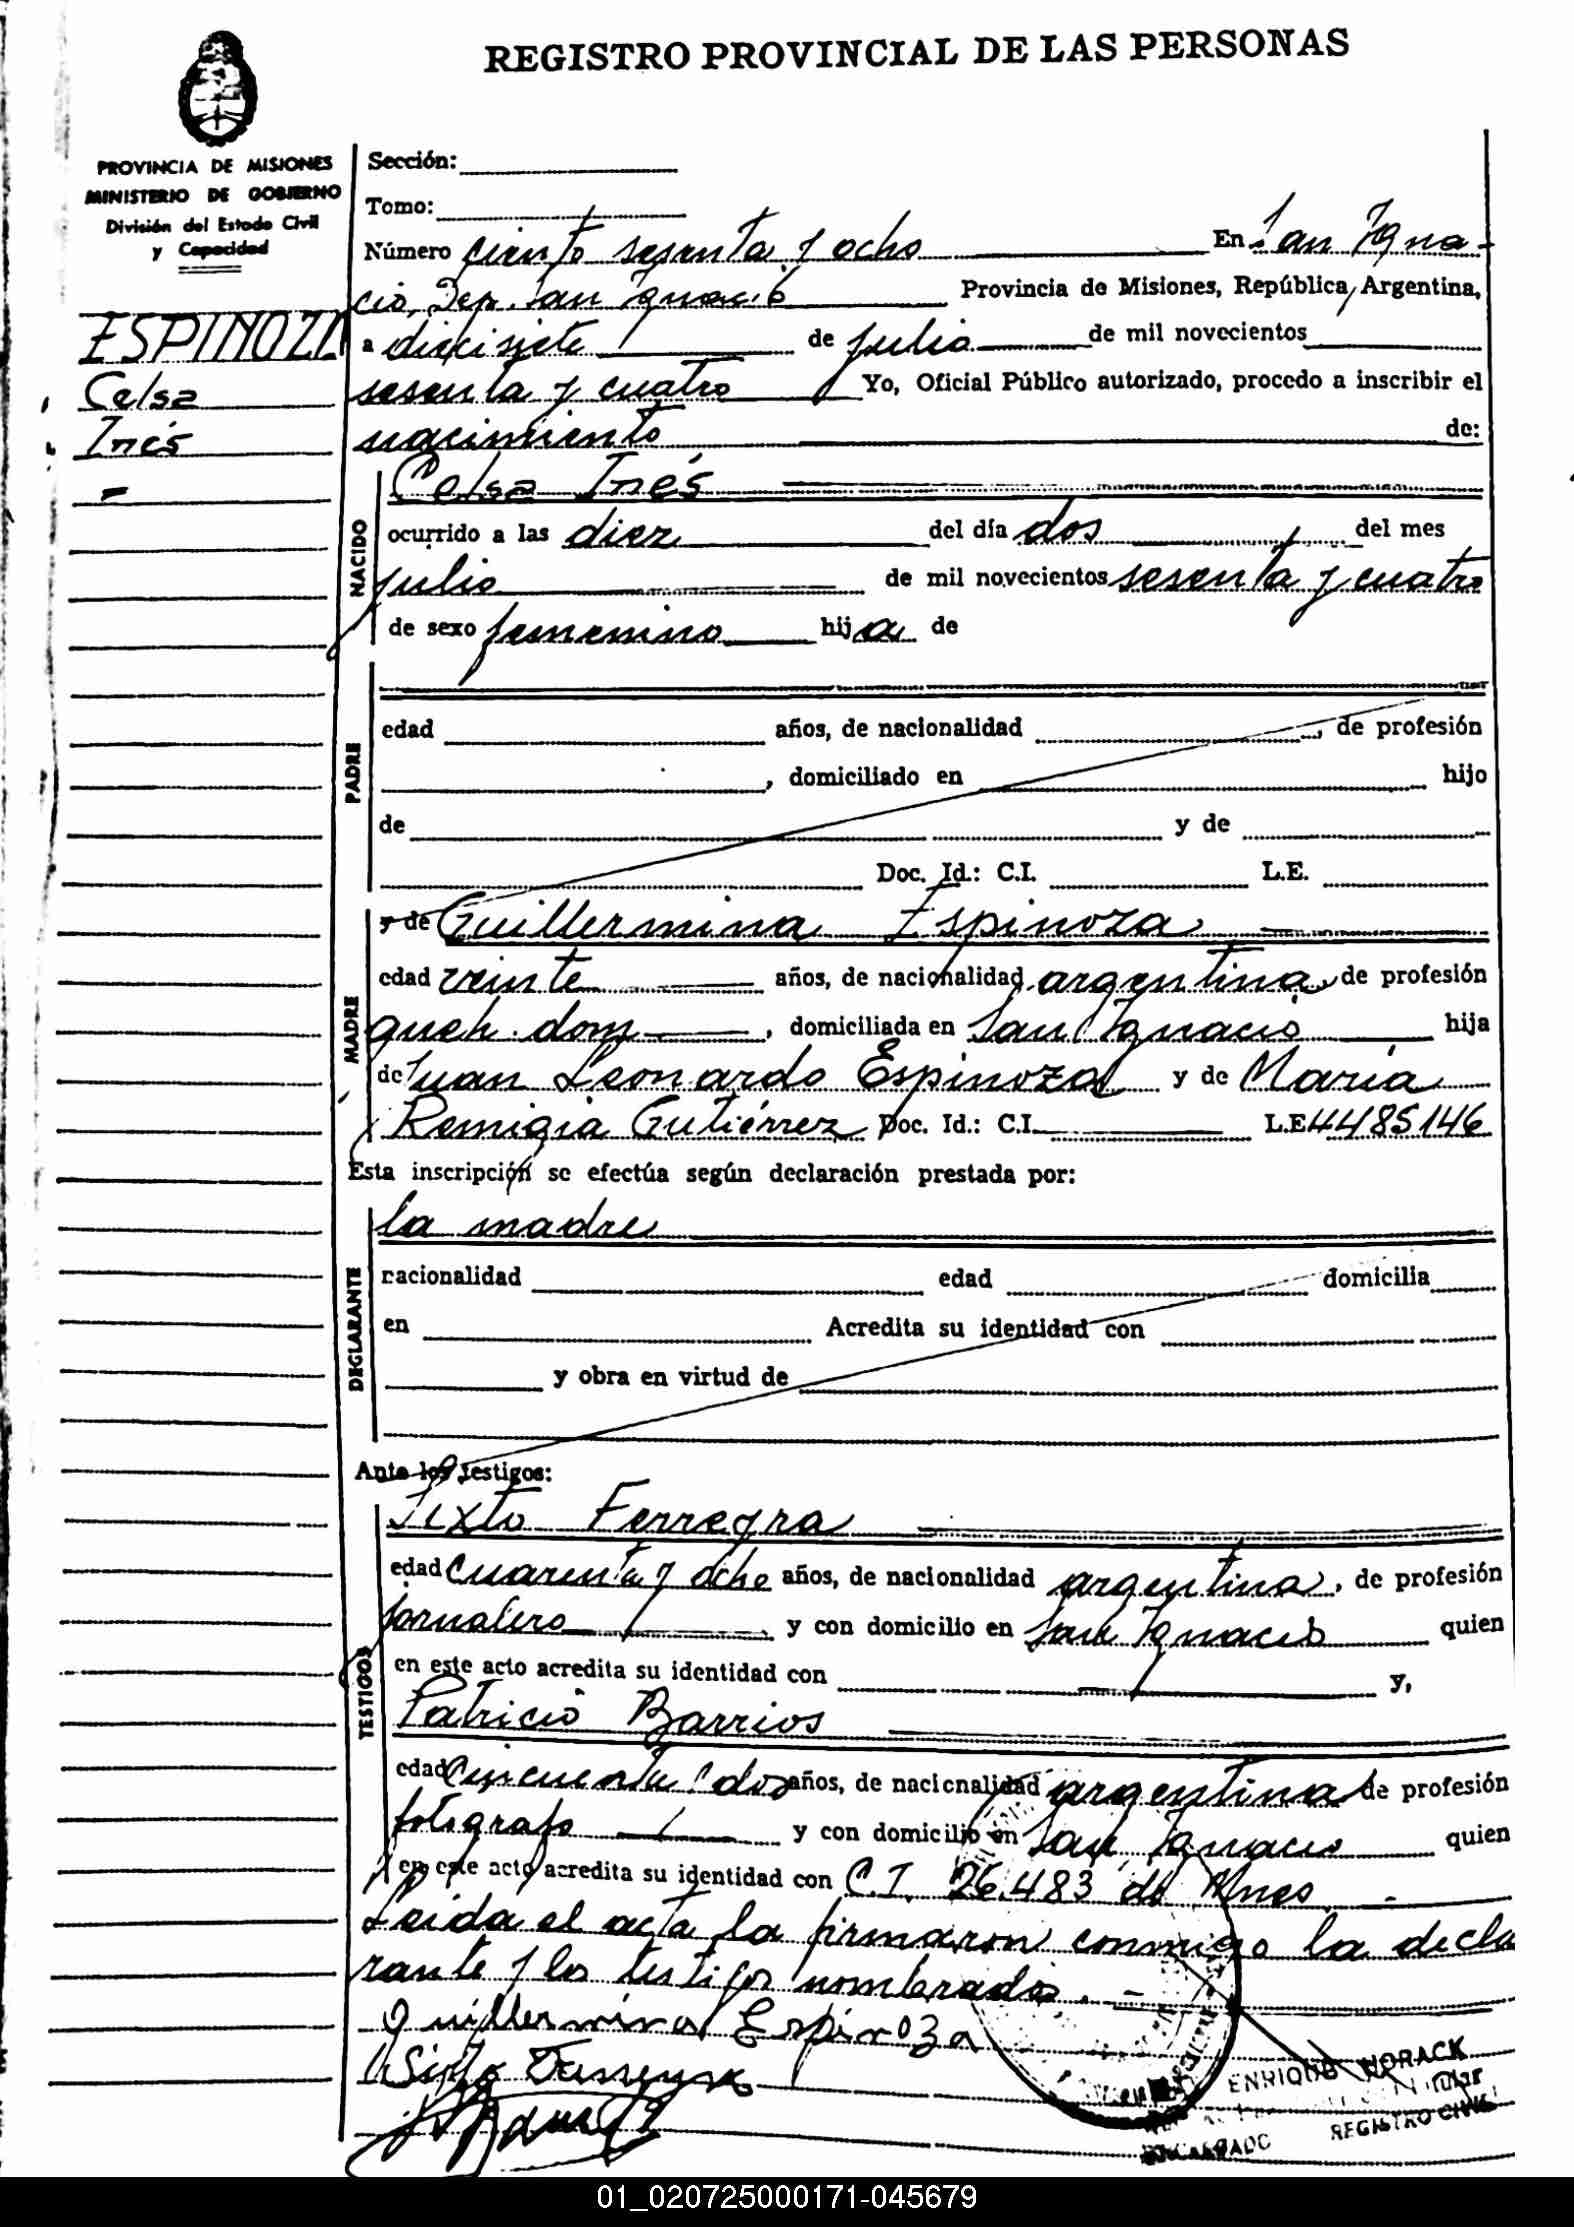 REGISTRO PROVINCIAL DE LAS PERSONAS
PROVINCIA DE MISIONES
MINISTERIO DE GOBIERNO
División del Estado Civil
y Capacidad
ESPINOZA
Celsa
Inés
Sección:
Tomo:
Número ciento sesenta y ocho En San Igna-
cio, Dep. San Ignacio Provincia de Misiones, República Argentina,
a diecisiete de julio de mil novecientos
sesenta y cuatro Yo, Oficial Público autorizado, procedo a inscribir el
nacimiento de:
NACIDO
Celsa Inés
ocurrido a las diez del día dos del mes
julio de mil novecientos sesenta y cuatro
de sexo femenino hija de
PADRE
edad años, de nacionalidad , de profesión
, domiciliado en hijo
de y de
Doc. Id.: C.I. L.E.
MADRE
y de Guillermina Espinoza
edad veinte años, de nacionalidad argentina, de profesión
queh. dom , domiciliada en San Ignacio hija
de Juan Leonardo Espinoza y de María
Remigia Gutiérrez Doc. Id.: C.I. L.E. 4485146
Esta inscripción se efectúa según declaración prestada por:
DECLARANTE
la madre
nacionalidad edad domicilia
en Acredita su identidad con
y obra en virtud de
Ante los testigos:
TESTIGOS
Sixto Ferreyra
edad cuarenta y ocho años, de nacionalidad argentina, de profesión
jornalero y con domicilio en San Ignacio quien
en este acto acredita su identidad con y,
Patricio Barrios
edad cincuenta y dos años, de nacionalidad argentina de profesión
fotógrafo y con domicilio en San Ignacio quien
en este acto acredita su identidad con C.I. 26.483 de Mnes
Leida el acta la firmaron conmigo la decla
rante y los testigos nombrados. -
Guillermina Espinoza
Sixto Ferreyra
ENRIQUE HORACK
Titular
ENCARGADO REGISTRO CIVIL
01_020725000171-045679